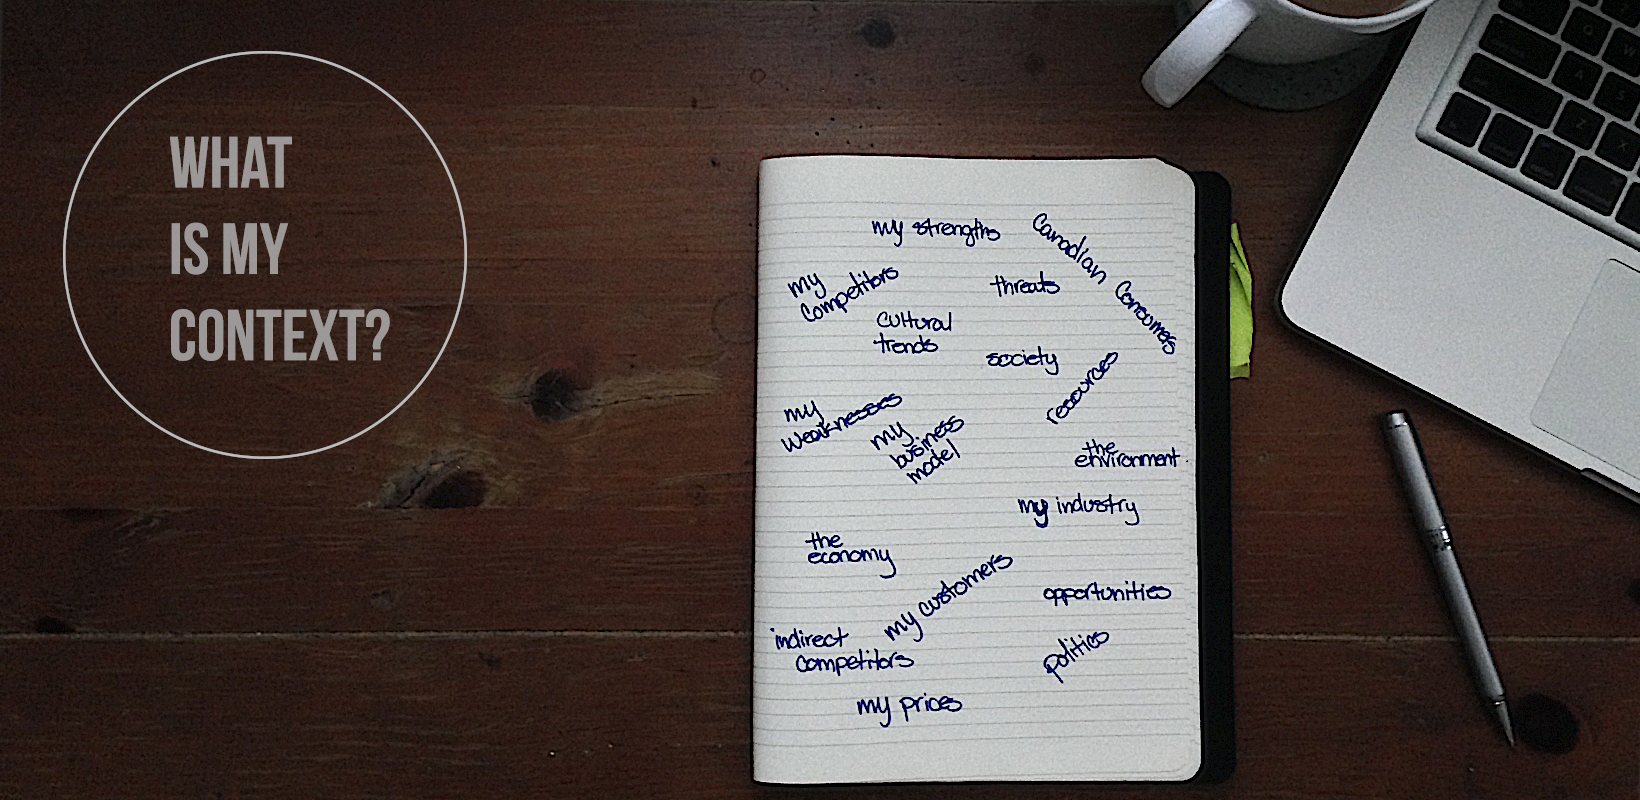 WHAT
IS MY
CONTEXT?
my strengths
Canadian Consumers
my
competitors
threats
cultural
trends
society
resources
my
weaknesses
my
business
model
the
environment
my industry
the
economy
my customers
opportunities
indirect
competitors
politics
my prices